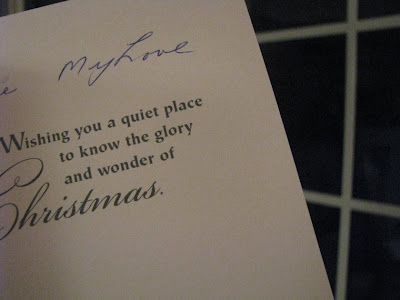 My Love
Wishing you a quiet place
to know the glory
and wonder of
Christmas.